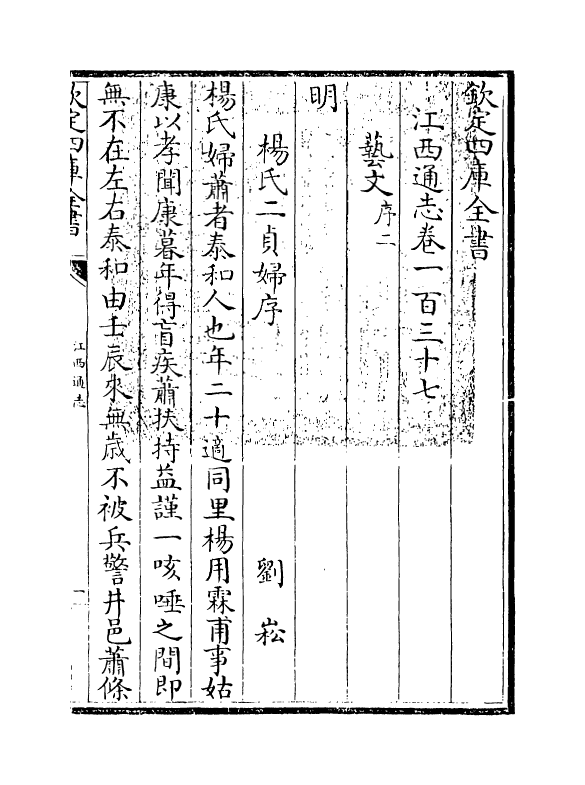 欽定四庫全書
江西通志卷一百三十七
藝文序二
明
楊氏二貞婦序 劉崧
楊氏婦蕭者泰和人也年二十適同里楊用霖甫事姑
康以孝聞康暮年得盲疾蕭扶持益謹一咳唾之間即
無不在左右泰和由壬辰來無歳不被兵警井邑蕭條
欽定四庫全書
江西通志
一